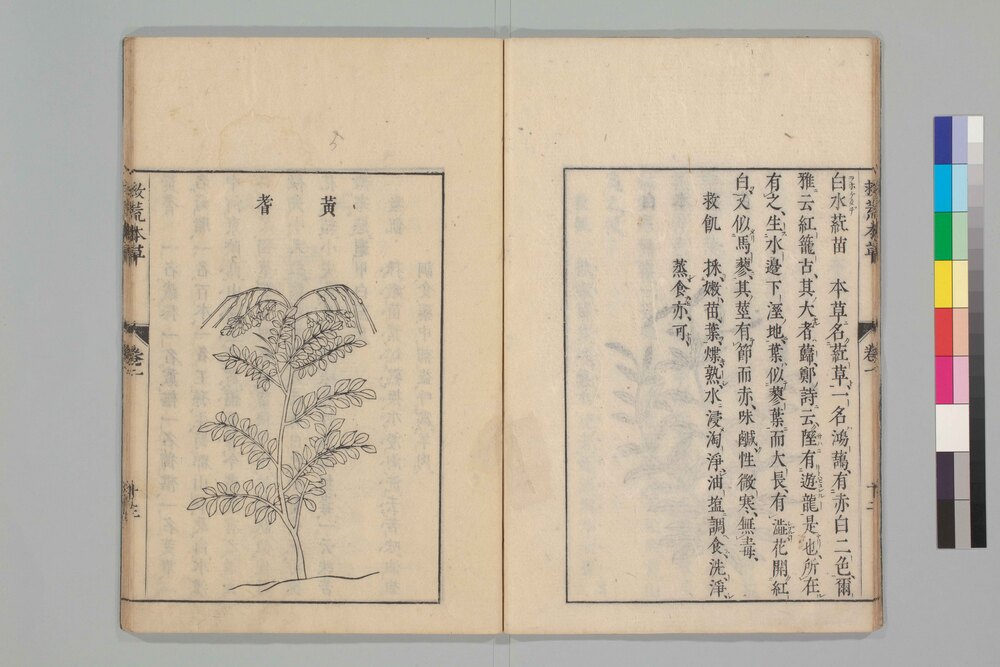 救荒本草 卷一 十二
白水葒苗 本草名葒草一名鴻𧄸有赤白二色爾
雅云紅蘢古其大者蘬鄭詩云隰有遊龍是也所在
有之生水邊下溼地葉似蓼葉而大長有澁花開紅
白又似馬蓼其莖有節而赤味鹹性微寒無毒
救飢 採嫩苗葉煠熟水浸淘淨油塩調食洗淨
蒸食亦可
黃
耆
救荒本草 卷一 十三